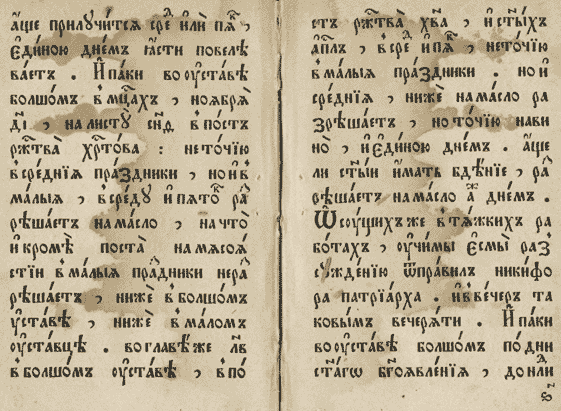 а҆́ще прилꙋчи́тсѧ срⷣе и҆лѝ пѧⷦ҇ ,
є҆ди́ною дне́мъ ꙗ҆́сти повелѣ
ва́етъ . И҆ па́ки во ᲂу҆ста́вѣ
болшо́мъ в мцⷭ҇ахъ , ноѧбрѧ̀
д҃і , на листꙋ̀ сн҃д в по́стъ
ржⷭ҇тва̀ хрⷭ҇то́ва : не то́чїю
в сре́днїѧ пра́здники , но и҆ в
ма́лыѧ , в сре́дꙋ и҆ пѧто́к ра
рѣша́етъ на ма́сло , на что̀
и҆ кромѣ̀ поста̀ на мѧсоѧ́
стїи в ма́лыѧ пра́дники не ра
рѣша́етъ , ни́же в болшо́мъ
ᲂу҆ста́вѣ , ни́же в ма́ломъ
ᲂу҆ста́вце . во главѣ́ же л҃в
в болшо́мъ ᲂу҆ста́вѣ , в по́
стъ ржⷭ҇тва̀ хв҃а , и҆ ст҃ы́хъ
а҆пⷭ҇лъ , в срⷣе и҆ пѧⷦ҇ , не то́чїю
в ма́лыѧ пра́здники . но и҆
сре́днїѧ , ни́же на ма́сло ра
зрѣша́етъ , но то́чїю на ви
но̀ , и҆ є҆ди́ною дне́мъ . а҆́ще
ли ст҃ы́и и҆́мать бдѣ́нїе , ра
рѣша́етъ на ма́сло а҆ⷤ дне́мъ .
Ѿ сꙋ́щихъ же в тѧ́жкихъ ра
бо́тахъ , ᲂу҆чи́мы є҆смы̀ раз
сꙋжде́нїю ѿ пра́вилъ ники́фо
ра патрїа́рха . и҆ в ве́черъ та
ковы́мъ вечерѧ́ти . И҆ па́ки
во ᲂу҆ста́вѣ болшо́мъ по дни
ст҃а́гѡ бг҃оѧвле́нїѧ , до нⷣли